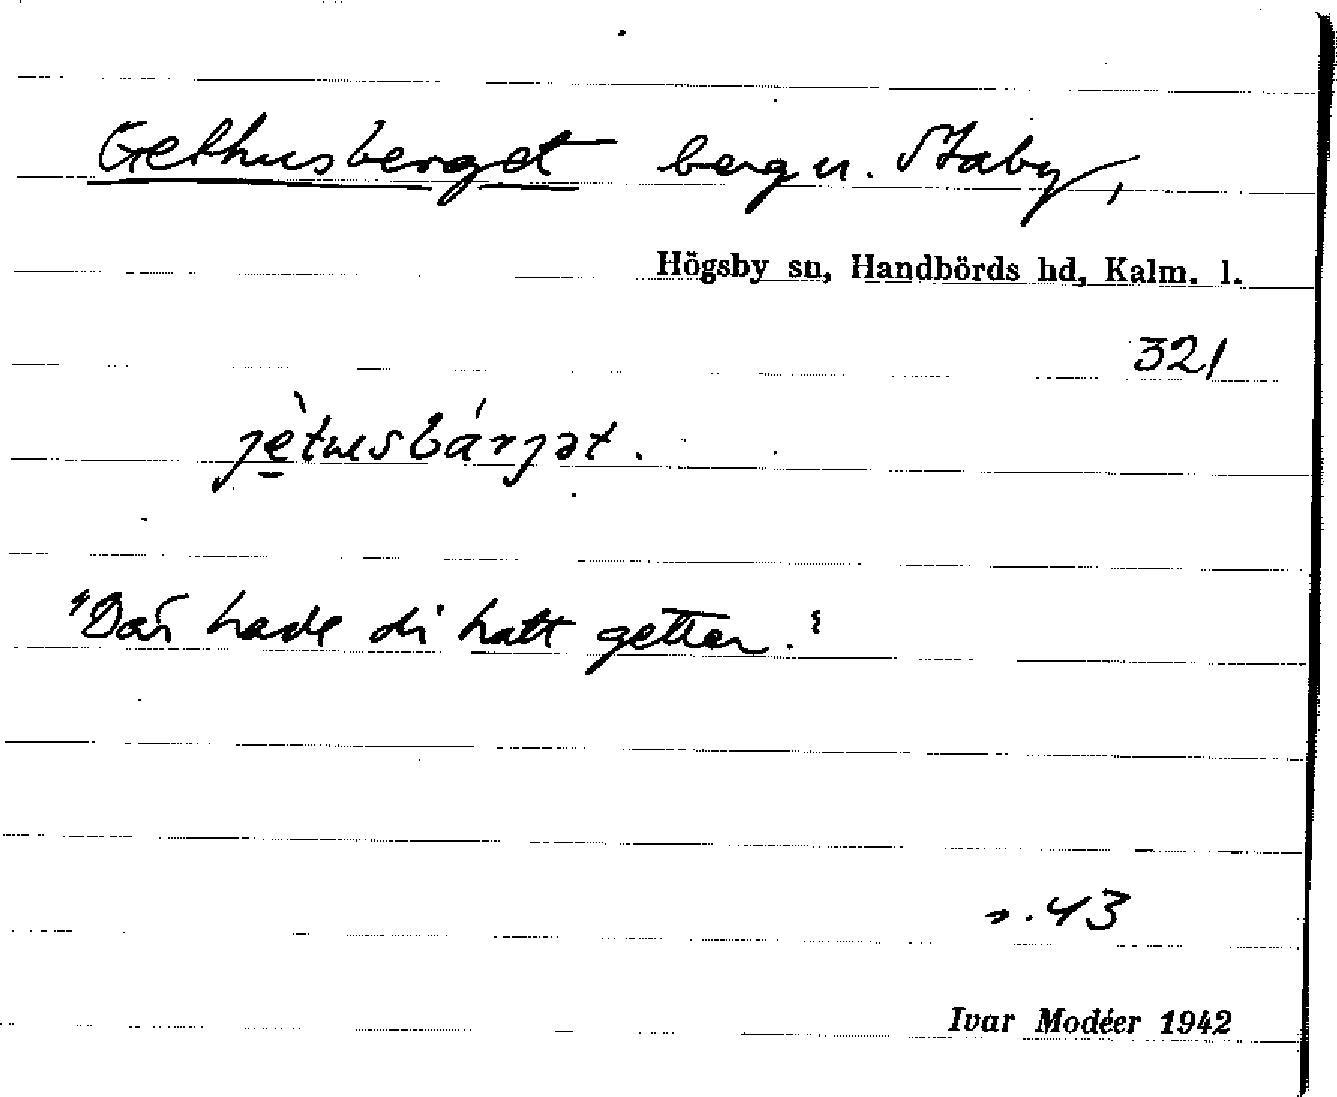 Gethusberget berg n. Staby,
Högsby sn, Handbörds hd, Kalm. l.
321
jètusbárjət.
"Där hade di hatt getter."
s. 43
Ivar Modéer 1942